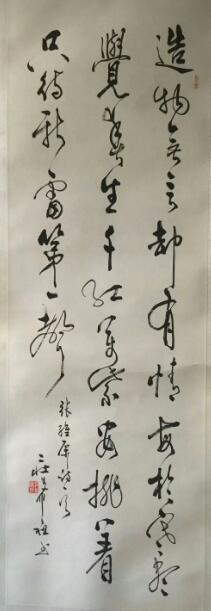 造物無言却有情每於寒盡
覺春生千紅萬紫安排著
只待新雷第一聲
張維屏詩一首